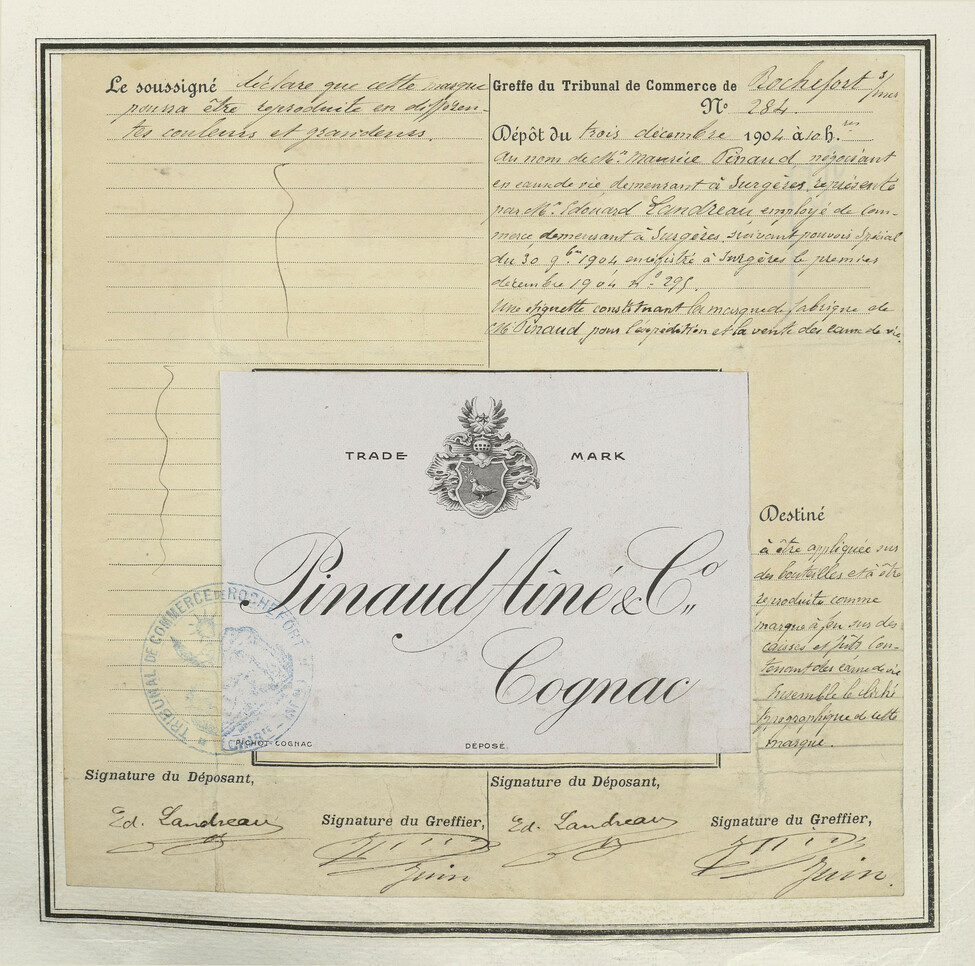 Le soussigné déclare que cette marque
pourra être reproduite en différen-
tes couleurs et grandeurs.
Greffe du Tribunal de Commerce de Rochefort s/mer
No 284.
Dépôt du trois décembre 1904 à 10 h. res
Au nom de Mr. Maurice Pinaud négociant
en eaux de vie, demeurant à Surgères, représenté
par Mr. Edouard Landreau employé de com-
merce demeurant à Surgères, suivant pouvoir spécial
du 30 9bre 1904 enregistré à Surgères le premier
décembre 1904 No 295.
Une étiquette constituant la marque de fabrique de
Mr Pinaud pour l'expédition et la vente des eaux de vie.
TRADE MARK
Pinaud Aîné & Co,,
Cognac
PICHOT-COGNAC
DÉPOSÉ.
TRIBUNAL DE COMMERCE DE ROCHEFORT
Destiné
à être appliquée sur
des bouteilles et à être
reproduite comme
marque à feu sur des
caisses et fûts con-
tenant des eaux de vie
Ensemble le cliché
typographique de cette
marque.
Signature du Déposant,
Ed. Landreau
Signature du Greffier,
Juin
Signature du Déposant,
Ed. Landreau
Signature du Greffier,
Juin.